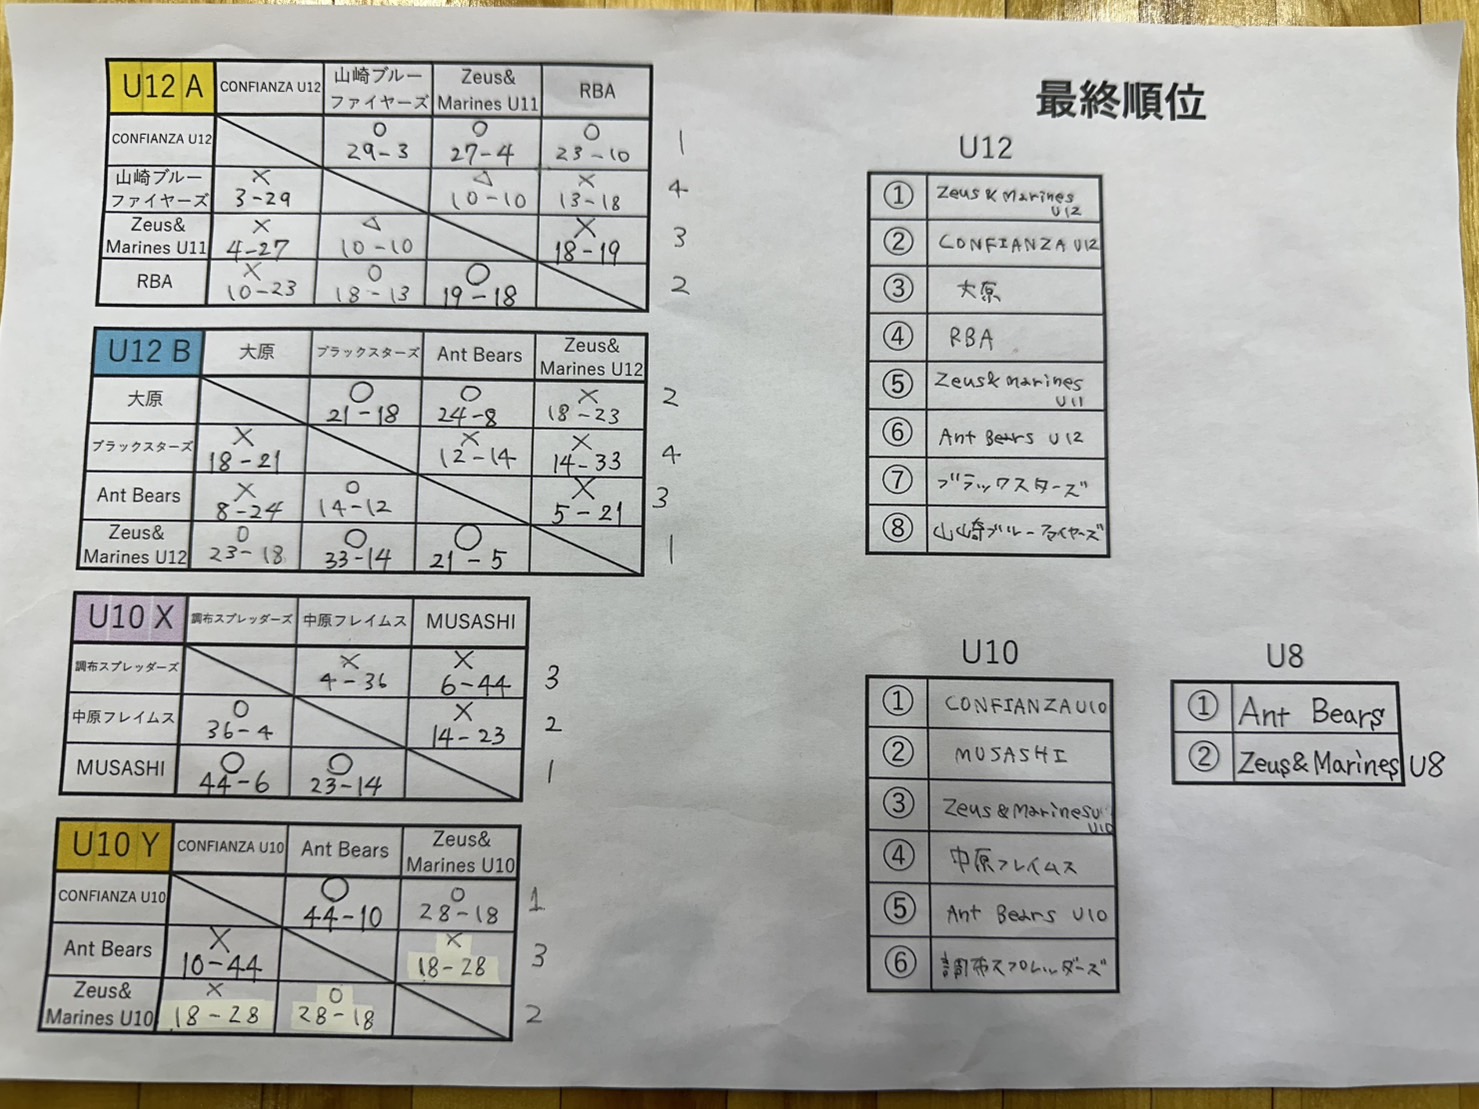 U12 A CONFIANZA U12 山崎ブルーファイヤーズ Zeus& Marines U11 RBA
CONFIANZA U12 ○ 29-3 ○ 27-4 ○ 23-10 1
山崎ブルーファイヤーズ × 3-29 △ 10-10 × 13-18 4
Zeus& Marines U11 × 4-27 △ 10-10 × 18-19 3
RBA × 10-23 ○ 18-13 ○ 19-18 2
U12 B 大原 ブラックスターズ Ant Bears Zeus& Marines U12
大原 ○ 21-18 ○ 24-8 × 18-23 2
ブラックスターズ × 18-21 × 12-14 × 14-33 4
Ant Bears × 8-24 ○ 14-12 × 5-21 3
Zeus& Marines U12 ○ 23-18 ○ 33-14 ○ 21-5 1
U10 X 調布スプレッダーズ 中原フレイムス MUSASHI
調布スプレッダーズ × 4-36 × 6-44 3
中原フレイムス ○ 36-4 × 14-23 2
MUSASHI ○ 44-6 ○ 23-14 1
U10 Y CONFIANZA U10 Ant Bears Zeus& Marines U10
CONFIANZA U10 ○ 44-10 ○ 28-18 1
Ant Bears × 10-44 × 18-28 3
Zeus& Marines U10 × 18-28 ○ 28-18 2
最終順位
U12
① Zeus & Marines U12
② CONFIANZA U12
③ 大原
④ RBA
⑤ Zeus& Marines U11
⑥ Ant Bears U12
⑦ ブラックスターズ
⑧ 山崎ブルーファイヤーズ
U10
① CONFIANZA U10
② MUSASHI
③ Zeus & Marines U10
④ 中原フレイムス
⑤ Ant Bears U10
⑥ 調布スプレッダーズ
U8
① Ant Bears
② Zeus&Marines U8